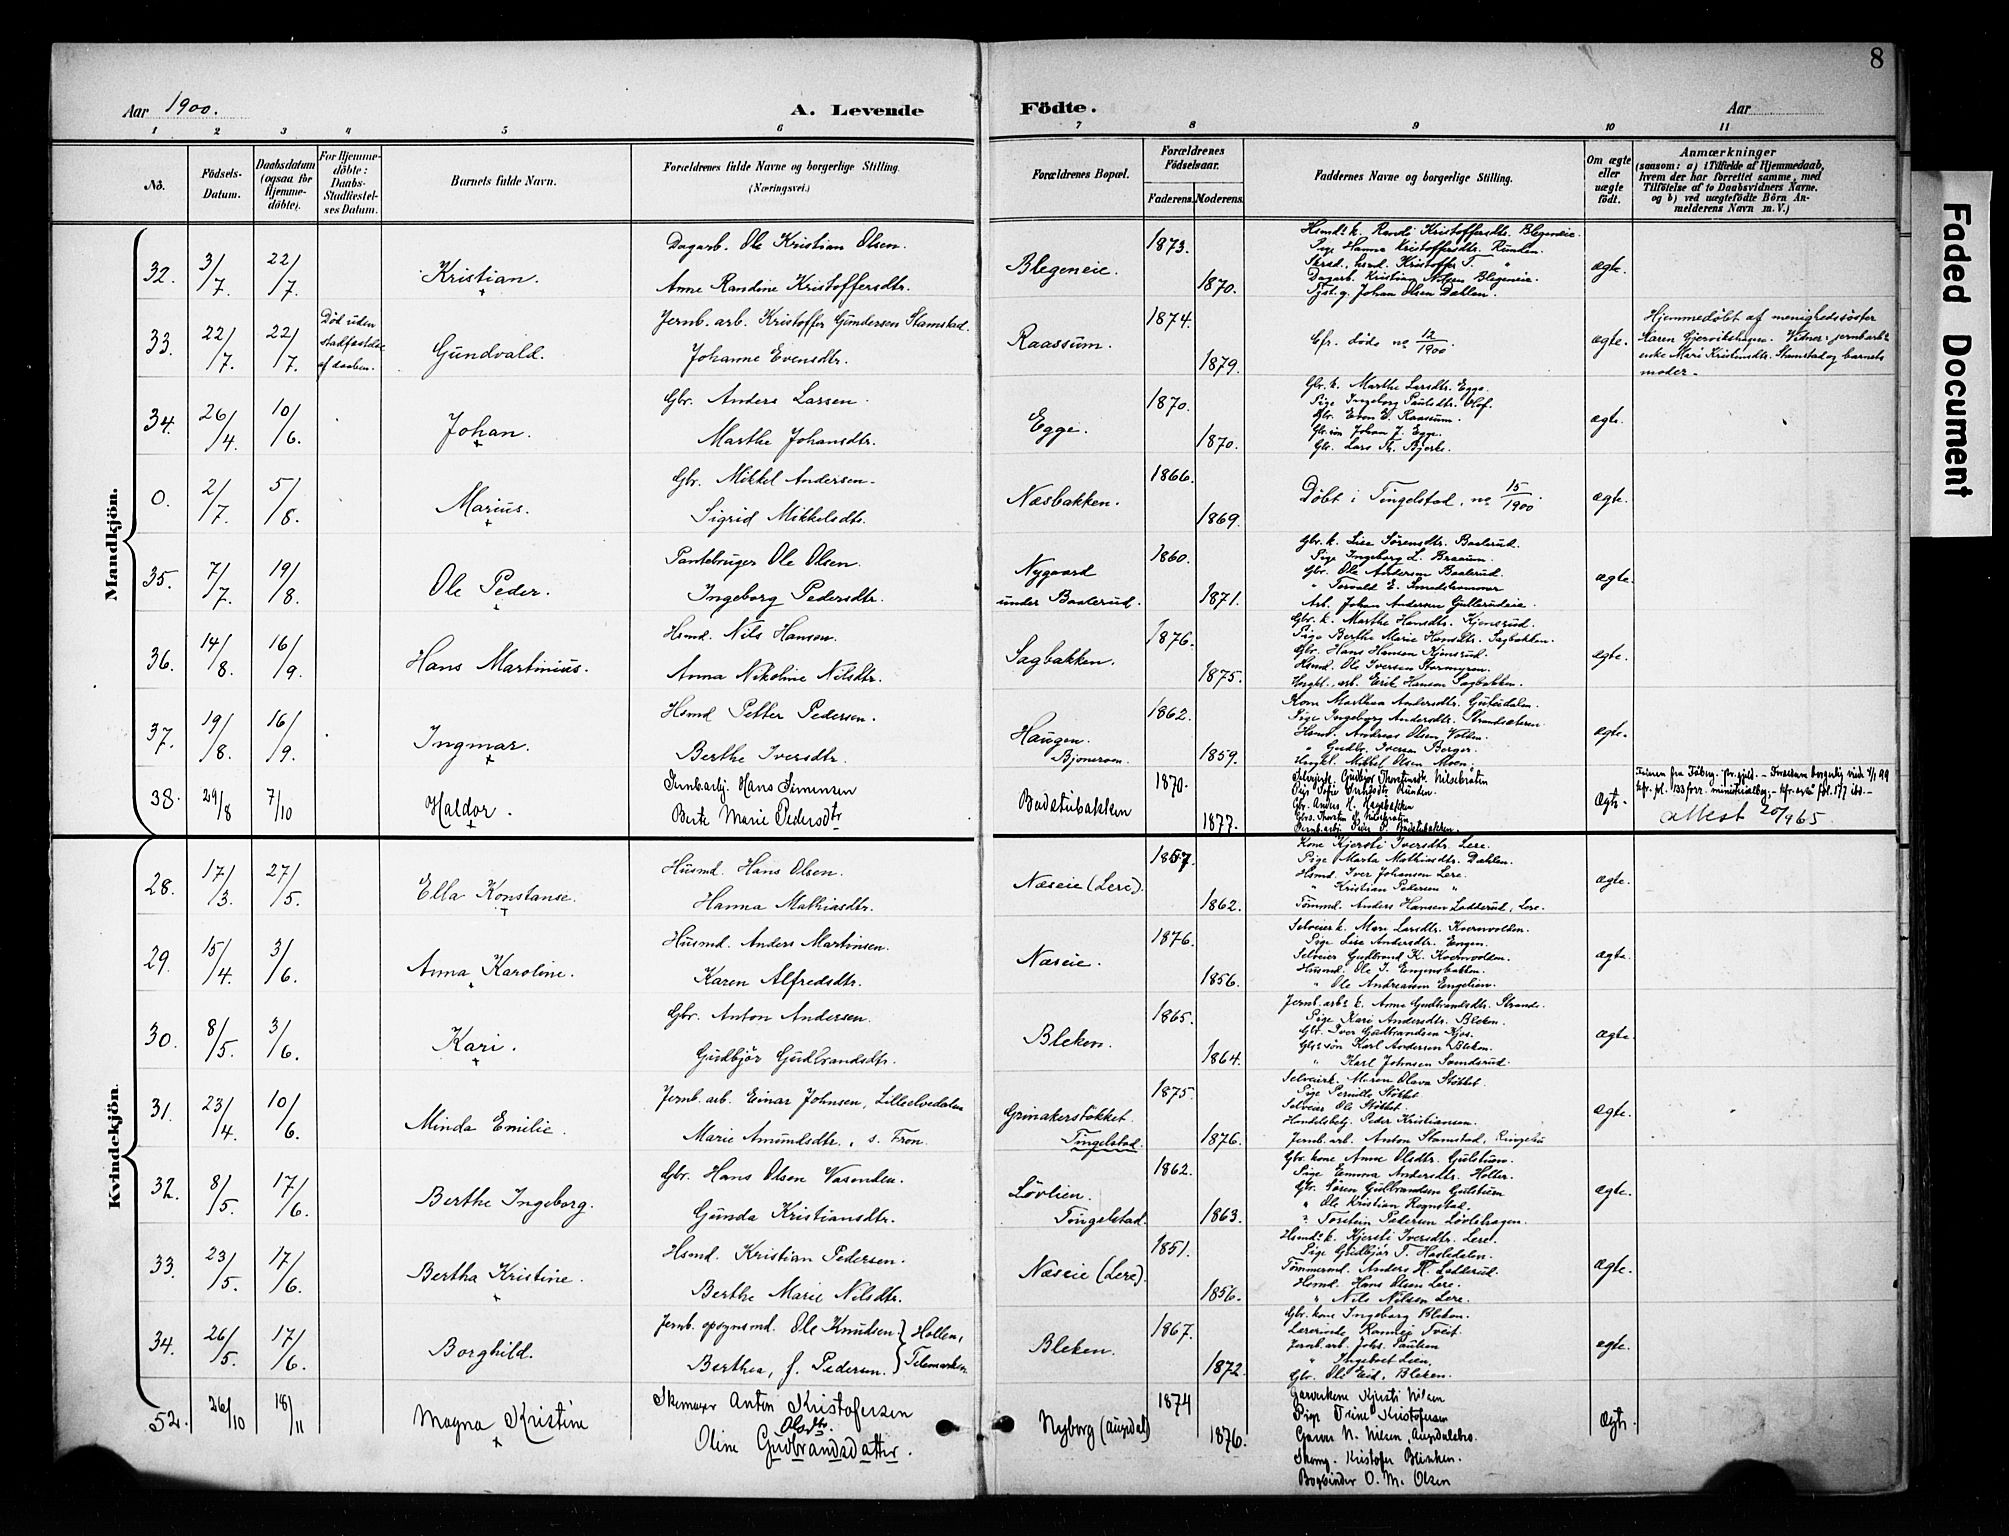 8
Aar 1900.
A. Levende Födte.
Aar
1 2 3 4 5 6 7 8 9 10 11
Nō.
Födsels-Datum.
Daabsdatum (ogsaa for Hjemmedöbte).
For Hjemmedöbte: Daabs-Stadfæstelses Datum.
Barnets fulde Navn.
Forældrenes fulde Navne og borgerlige Stilling. (Næringsvei.)
Forældrenes Bopæl.
Forældrenes Födselsaar.
Faderens. Moderens.
Faddernes Navne og borgerlige Stilling.
Om ægte eller uægte födt.
Anmærkninger
(saasom: a) i Tilfælde af Hjemmedaab, hvem der har forrettet samme, med Tilföielse af to Daabsvidners Navne. og b) ved uægtefödte Börn Anmelderens Navn m. V.)
Faded Document
Mandkjön.
32. 3/7. 22/7. Kristian. Dagarb. Ole Kristian Olsen. Anne Randine Kristoffersdtr. Blegeneie. 1873. 1870. ægte.
Hsmds k. Randi Kristoffersdtr. Blegeneie.
Pige Hanna Kristoffersdtr. Ründen.
Skræd., hsmd. Kristoffer T. "
Dagarb. Kristian Nilsen Blegeneie.
Tjst.g. Johan Olsen Dahlen.
33. 22/7. 22/7. Död uden stadfæstelse af daaben. Gundvald. Jernb. arb. Kristoffer Gundersen Stamstad. Johanne Evensdtr. Raassum. 1874. 1879. Cfr. døde no 12/1900. ægte.
Hjemmedøbt af menighedssøster Karen Gjervikshagen. Vidner: jernbarbs enke Mari Kristiansdtr. Stamstad og barnets moder.
34. 26/4 10/6. Johan. Gbr. Anders Larsen. Marthe Johansdtr. Egge. 1870. 1870. ægte.
Gbr. k. Marthe Larsdtr. Egge.
Pige Ingeborg Paulsdtr. Hof.
Gbr. Even E. Raassum.
Gbr.søn Johan J. Egge.
Gbr. Lars Th. Bjerke.
0. 2/7. 5/8. Marius. Gbr. Mikkel Andersen. Sigrid Mikkelsdtr. Næsbakken. 1866. 1869. Døbt i Tingelstad, no 15/1900 ægte.
35. 7/7. 19/8. Ole Peder. Pantebruger Ole Olsen. Ingeborg Pedersdtr. Nygaard under Baalerud. 1860. 1871. ægte.
Gbr. k. Lise Sørensdtr. Baalerud.
Pige Ingeborg L. Braaum.
Gbr. Ole Andersen Baalerud.
" Torvald E. Smedshammer
Arb. Johan Andersen Gullerudeie.
36. 14/8. 16/9. Hans Martinius. Hsmd. Nils Hansen. Anna Nikoline Nilsdtr. Sagbakken. 1876. 1875. ægte.
Gbr. k. Marthe Hansdtr. Kjonsrud.
Pige Berthe Marie Hansdtr. Sagbakken.
Gbr. Hans Hansen Kjonsrud.
Hsmd. Ole Iversen Stormyren.
Ungkl., arb. Erik Hansen Sagbakken.
37. 19/8. 16/9. Ingmar. Hsmd Petter Pedersen. Berthe Iversdtr. Haugen. Bjoneroen. 1862. 1859. ægte.
Kone Marthea Andersdtr.
Pige Ingeborg Andersdtr. Strandsæteren.
Hsmd. Andreas Olsen Vollen.
" Gudbr. Iversen Berger.
Ungkl. Mikkel Olsen Moen.
38. 29/8 7/10 Haldor. Jernb.arbj. Hans Simensen Berte Marie Pedersdtr Badstubakken 1870. 1877. Ægte.
Gudbjør Thorstensdt. Nilsebraten
Pige Sofie Rünten
Gbr. Anders H. Hagebakken
Gbrs. Thorsten Nilsebraten
Jernb.arbj. Peder P. Badstubakken.
Faderen fra Faaberg pr.gjeld.
attest 20/9 65
Kvindekjön.
28. 17/3. 27/5. Ella Konstanse. Husmd. Hans Olsen. Hanna Mathiasdtr. Næseie (Lere). 1857. 1862. ægte.
Kone Kjersti Iversdtr. Lere.
Pige Marta Mathiasdtr. Dahlen.
Hsmd. Iver Johansen Lere.
" Kristian Pedersen "
Tömmd. Anders Hansen Lodderud, Lere.
29. 15/4. 3/6. Anna Karoline. Husmd. Anders Martinsen. Karen Alfredsdtr. Næseie. 1876. 1856. ægte.
Selveier k. Mari Larsdtr. Kvernvolden.
Pige Lise Andersdtr. Engen.
Selveier Gudbrand K. Kvernvolden.
Husmd. Ole J. Engensbakken.
" Ole Andreassen Engelien.
30. 8/5. 3/6. Kari. Gbr. Anton Andersen. Gudbjör Gudbrandsdtr. Bleken. 1865. 1864. ægte.
Jernb. arbs k. Anne Gudbrandsdtr. Strande.
Pige Kari Andersdtr. Bleken.
Gbr. Iver Gudbrandsen Kjos.
Gbrs sön Karl Andersen Bleken.
" Karl Johnsen Svenderud
31. 23/4. 10/6. Minda Emilie. Jernb. arb. Einar Johnsen, Lilleelvedalen Marie Amundsdtr., s. Fron. Grinakerstøkket. Tingelstad. 1875. 1876. ægte.
Selveierk. Maren Olava Støkket.
Pige Pernille Støkket
Selveier Ole Støkket.
Handelsbetj. Peder Kristiansen.
Jernb. arb. Anton Stamstad, Ringebu
32. 8/5. 17/6. Berthe Ingeborg. Gbr. Hans Olsen Vasenden. Gunda Kristiansdtr. Løvlien. Tingelstad. 1862. 1863. ægte.
Gbr. kone Anne Olsdtr. Gulstuen.
Pige Emma Andersdtr. Holter.
Gbr. Søren Gudbrandsen Gulstuen
" Ole Kristian Rognstad.
" Torstein Pedersen Løvlihagen.
33. 23/5. 17/6. Bertha Kristine. Hsmd. Kristian Pedersen. Berthe Marie Nilsdtr. Næseie (Lere). 1851. 1856. ægte.
Hsmds k. Kjersti Iversdtr. Lere.
Pige Gudbjör T. Hasledalen.
Tömmermd. Anders H. Lodderud.
Hsmd. Hans Olsen Lere.
" Nils Nilsen Lere.
34. 26/5. 17/6. Borghild. Jernb. opsynsmd. Ole Knudsen Berthea, f. Pedersen. } Hollen, Telemarken Bleken. 1867. 1872. ægte.
Gbr. kone Ingeborg Bleken.
Lærerinde Rannei Tveit.
Jernb. arb. Johs. Paulsen
" Ingebret Lien.
Gbr. Ole Eid, Bleken.
52. 26/10 18/11 Magna Kristine Skomager Anton Kristofersen Oline Olsdtr. Gudbrandsdatter. Nyborg (Augedal) 1874 1876. Ægte.
Garverkone Kjersti Nilsen
Pige Trine Kristofersen
Garver N. Nilsen, Augedalsbro.
Skomg. Kristofer Blinken.
Bogbinder O. M. Olsen